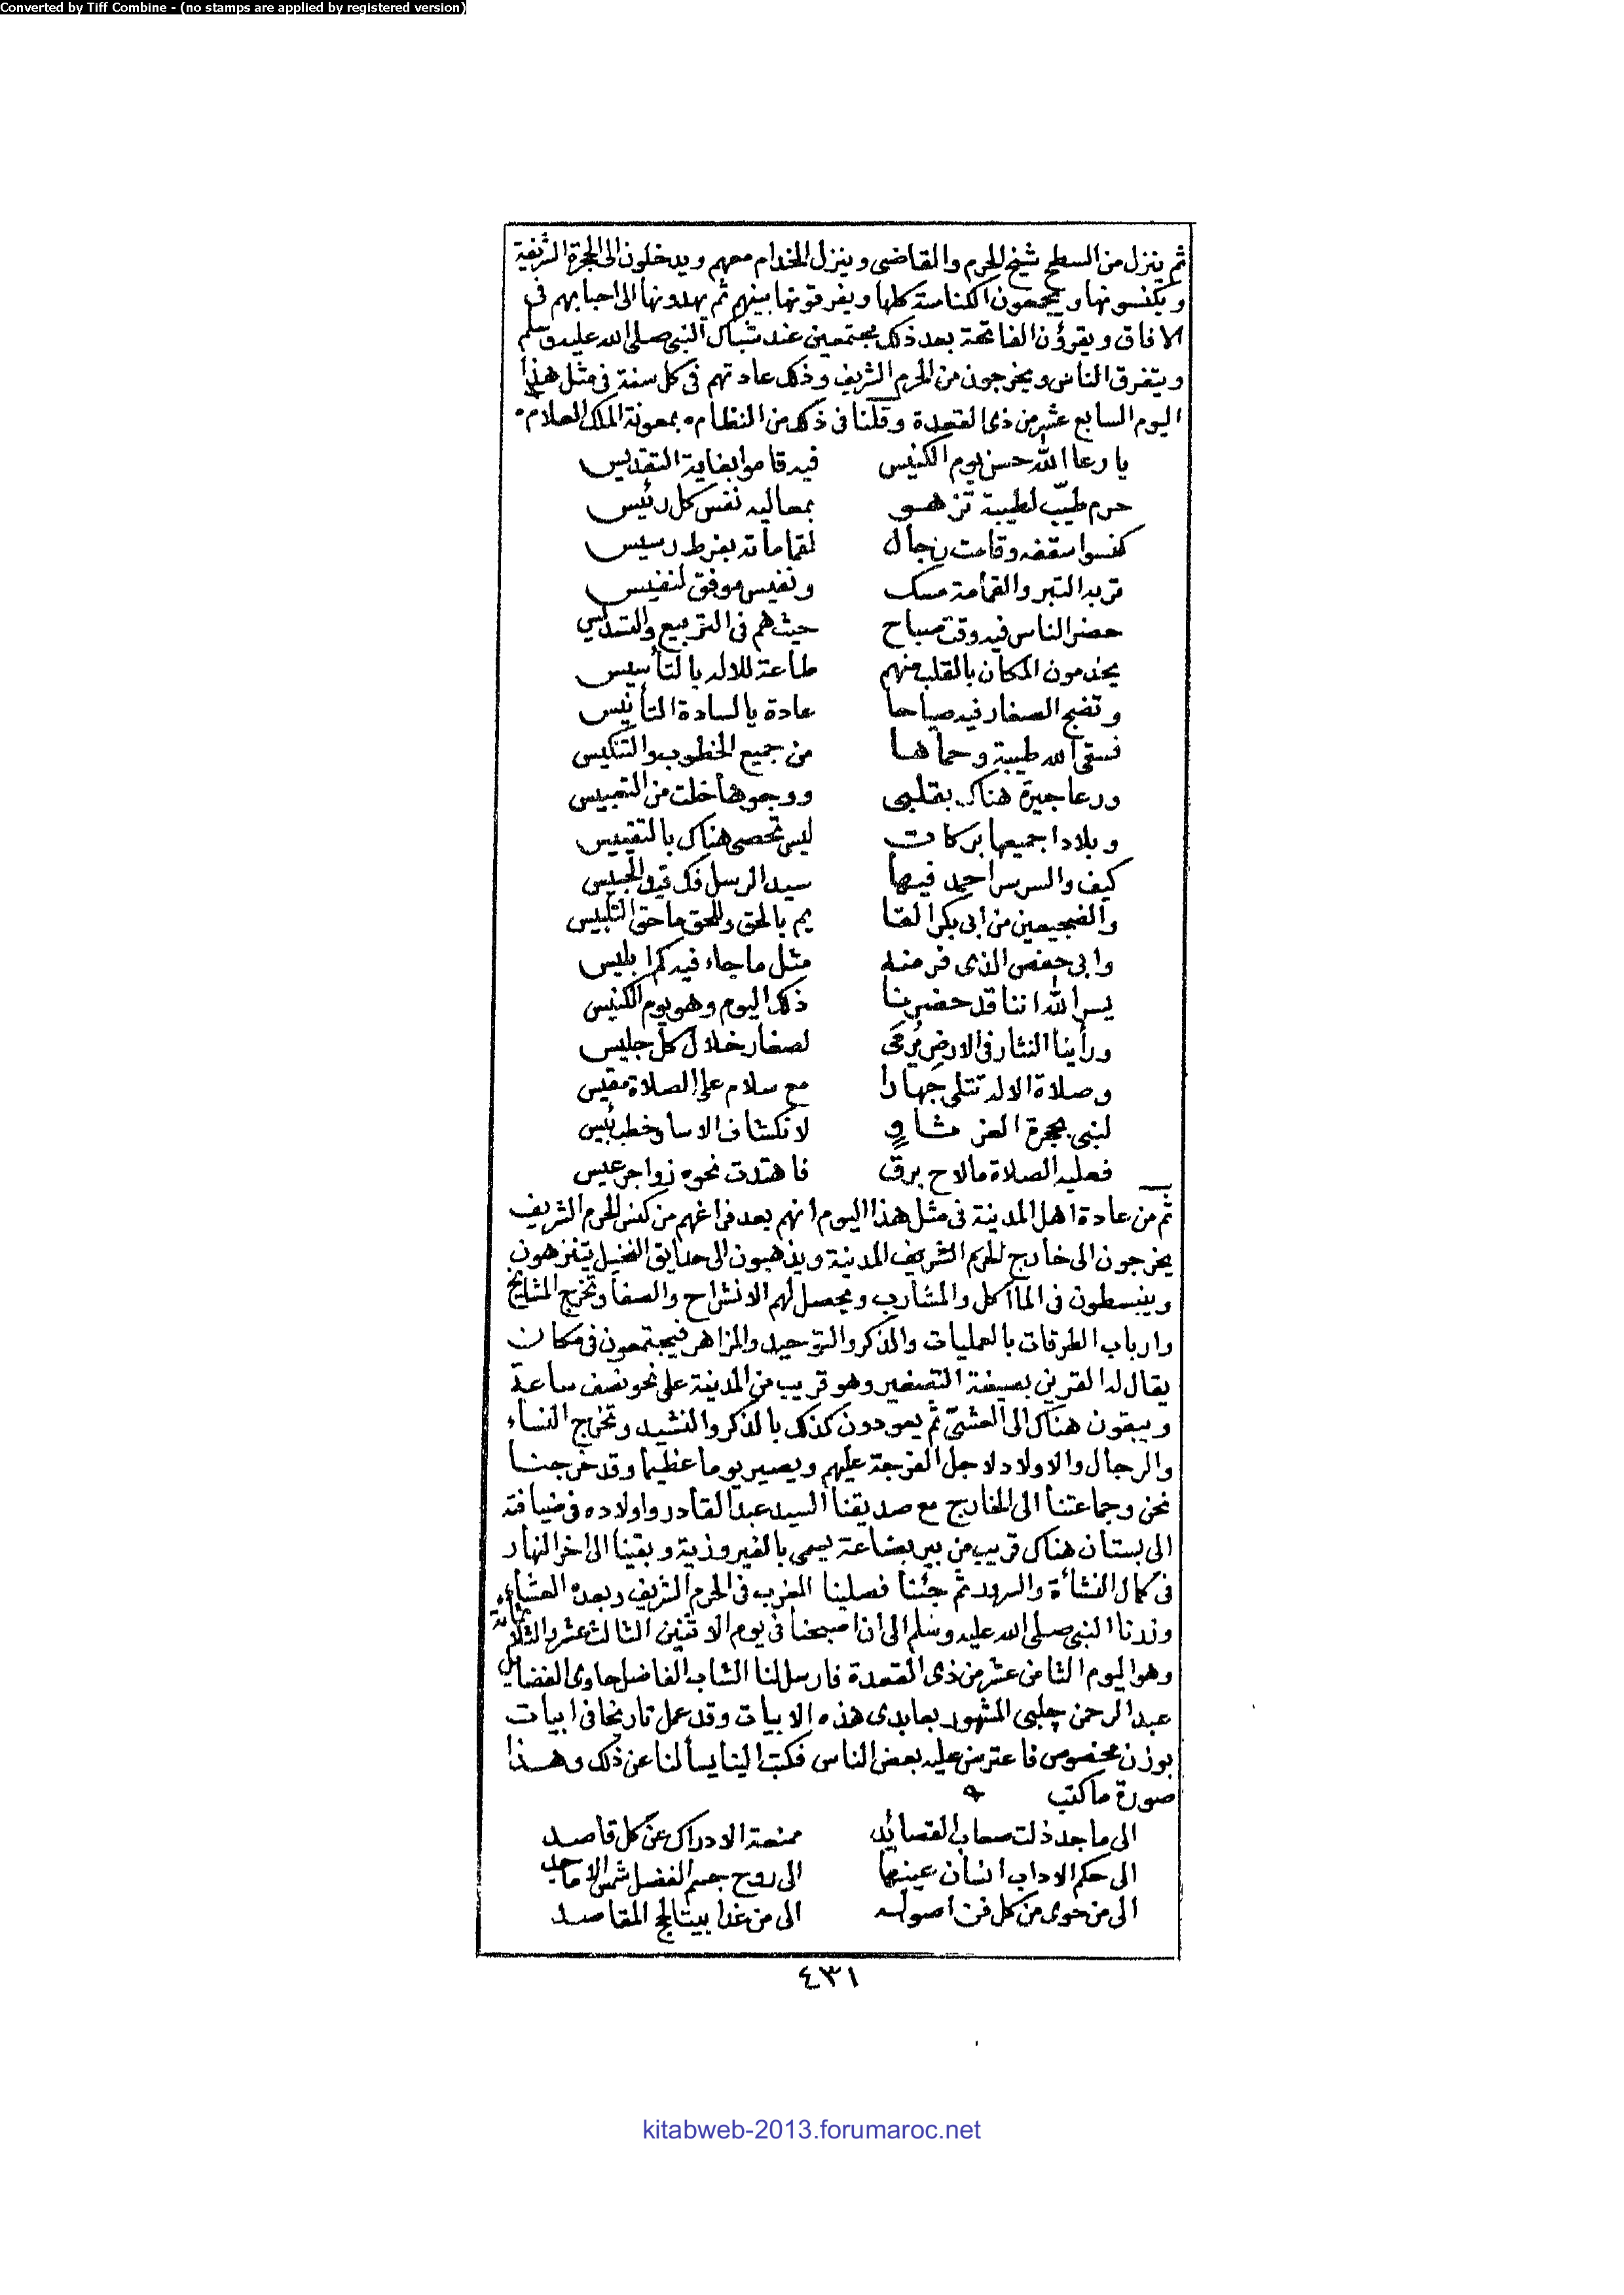 Converted by Tiff Combine - (no stamps are applied by registered version)
ثم ينزل من السطح شيخ الحرم والقاضى وينزل الخدام معهم ويدخلون الى الحجرة الشريفة
ويكنسونها ويجمعون الكناسة كلها ويفرقونها بينهم ثم يهدونها الى احبابهم فى
الافاق ويقرؤن الفاتحة بعد ذلك مجتمعين عند شباك النبى صلى الله عليه وسلم
ويتفرق الناس ويخرجون من الحرم الشريف وذلك عادتهم فى كل سنة فى مثل هذا
اليوم السابع عشر من ذى القعدة وقلنا فى ذلك من النظام بمعونة الملك العلام
يا رعا الله حسن يوم الكنيس فيه قاموا بغاية التقديس
حرم طيب لطيبة تزهو بمعاليه نفس كل رئيس
كنسوا سقفه وقامت رجال لقماماته بفرط رسيس
تربه التبر والقمامة مسك ونفيس موفق لنفيس
حضر الناس فيه وقت صباح حيث هم فى التربيع والتسديس
يخدمون المكان بالقلب منهم طاعة للاله بالتأسيس
وتضج الصغار فيه صياحا عادة يالسادة التأنيس
فسقى الله طيبة وحماها من جميع الخطوب والتنكيس
ورعا جيرة هناك بقلبى ووجوها خلت من التعبيس
وبلادا جميعها بركات ليس تحصى هناك بالتقييس
كيف والسر سر احمد فيها سيد الرسل فك قيد الحبيس
والضجيعين من ابى بكر القا يم بالحق وللحق ماحق التلبيس
وابى حفص الذى فر منه مثل ما جاء فيه كم ابليس
يسر الله اننا قد حضرنا ذلك اليوم وهو يوم الكنيس
ورأينا النثار فى الارض يرمى لصغار خلال كل جليس
وصلاة الاله تتلى جهارا مع سلام على الصلاة مقيس
لنبى بحجرة العز ثاو لانكشاف الاسا وخطب بئيس
فعليه الصلاة ما لاح برق فاهتدت نحوه زواجر عيس
ثم من عادة اهل المدينة فى مثل هذا اليوم انهم بعد فراغهم من كنس الحرم الشريف
يخرجون الى خارج الحرم الشريف المدينة ويذهبون الى حدايق النخيل يتنزهون
وينبسطون فى المأاكل والمشارب ويحصل لهم الانشراح والصفا وتخرج المشايخ
وارباب الطرقات بالعمليات والذكر والتوحيد والمزاهر فيجتمعون فى مكان
يقال له القرين بصيغة التصغير وهو قريب من المدينة على نحو نصف ساعة
ويبقون هناك الى العشى ثم يعودون كذلك بالذكر والنشيد وتخرج النساء
والرجال والاولاد لاجل الفرجة عليهم ويصير يوما عظيما وقد خرجنا
نحن وجماعتنا الى الخارج مع صديقنا السيد عبد القادر واولاده فى ضيافة
الى بستان هناك قريب من بير بضاعة يسمى بالفيروزية وبقينا الى اخر النهار
فى كمال النشأة والسرور ثم جئنا فصلينا المغرب فى الحرم الشريف وبعده العشاء
وزرنا النبى صلى الله عليه وسلم الى ان اصبحنا فى يوم الاثنين الثالث عشر والثلاثمائة
وهو اليوم الثامن عشر من ذى القعدة فارسل لنا الشاب الفاضل حاوى الفضايل
عبد الرحمن چلبى المشهور بعابدى هذه الابيات وقد عمل تاريخا فى ابيات
بوزن مخصوص فاعترض عليه بعض الناس فكتب الينا يسألنا عن ذلك وهذا
صورة ما كتب
الى ماجد ذلت صعاب القصائد ممنعة الادراك عن كل قاصد
الى حكم الاداب انسان عينها الى روح جسم الفضل شمس الاماجد
الى من حوى من كل فن اصوله الى من غدا بيتا لحج المقاصد
٤٣١
kitabweb-2013.forumaroc.net